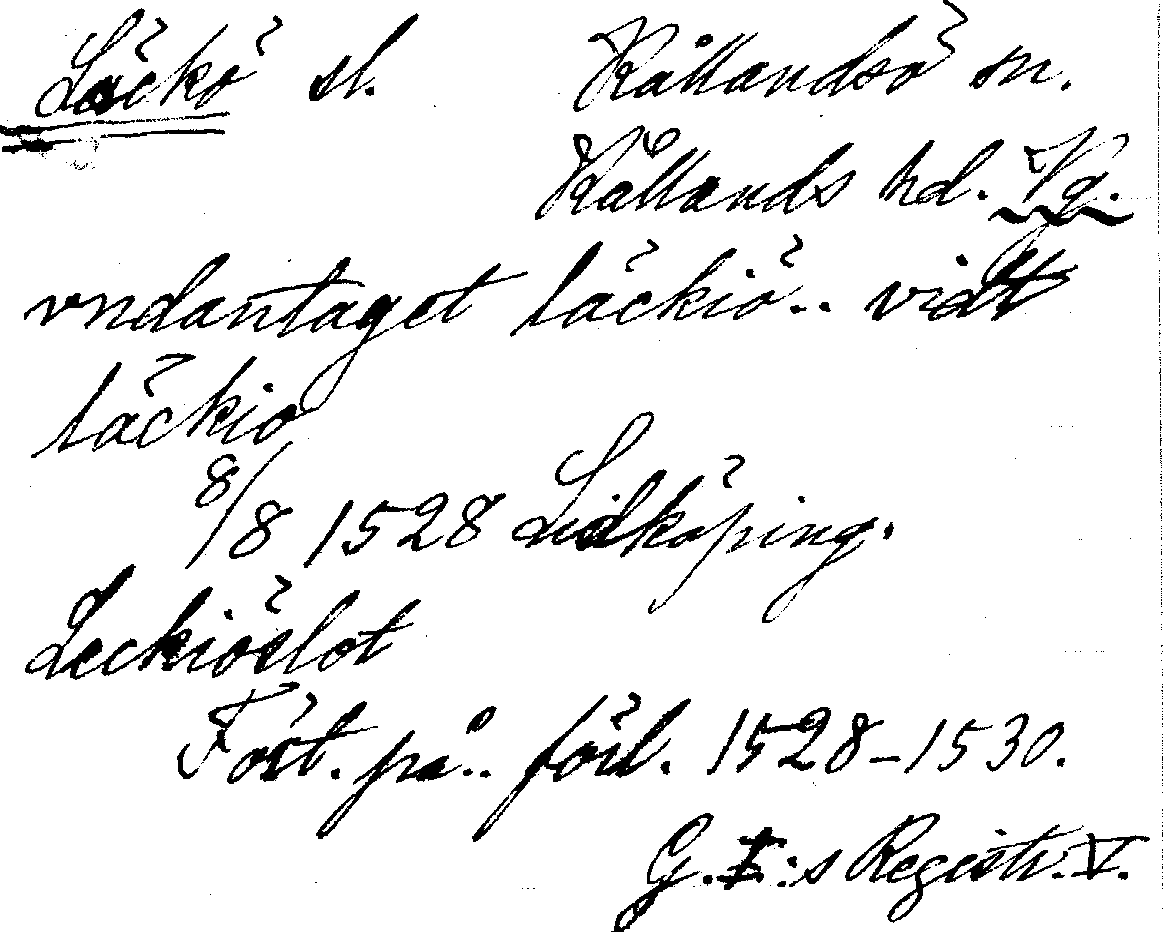 Läckö sl. Kållandsö sn.
Kållands hd. Vg.
vndantaget läckiö.. vidt
läckiö
8/8 1528 Lidköping.
Leckiöslot
Fört. på.. förl. 1528-1530.
G.I:s Registr. V.